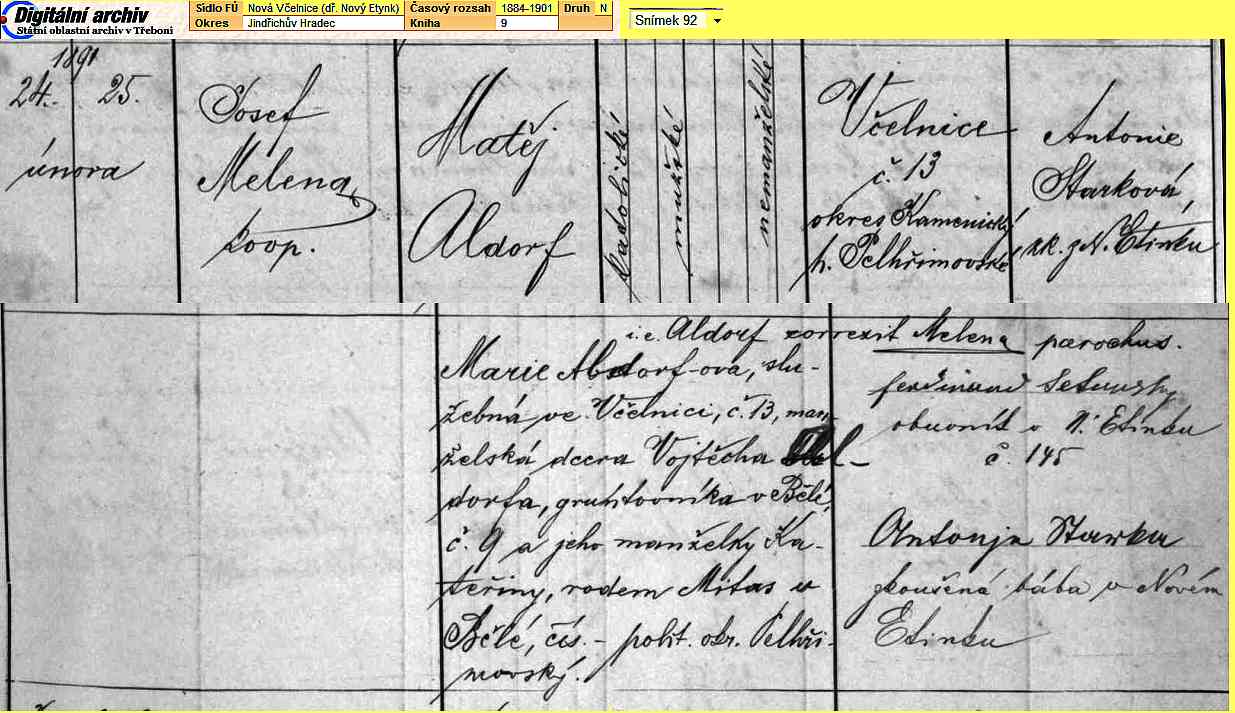 Digitální archiv
Státní oblastní archiv v Třeboni
Sídlo FÚ Nová Včelnice (dř. Nový Etynk) Časový rozsah 1884-1901 Druh N
Okres Jindřichův Hradec Kniha 9
Snímek 92
1891
24. 25.
února
Josef
Melena,
koop.
Matěj
Aldorf
katolické
mužské
nemanželské
Včelnice
č. 13
okres Kamenický
h. Pelhřimovské
Antonie
Starková,
zk. z N. Etinku
i.e. Aldorf correxit Melena parochus.
Marie Aldorf-ova, slu-
žebná ve Včelnici, č. 13, man-
želská dcera Vojtěcha Al-
dorfa, gruntovníka v Bělé,
č. 9 a jeho manželky Ka-
teřiny, rodem Mitas v
Bělé, čís. - polit. okr. Pelhři-
movský.
Ferdinand
obuvník v N. Etinku
č. 145
Antonja Starka
zkoušená bába v Novém
Etinku